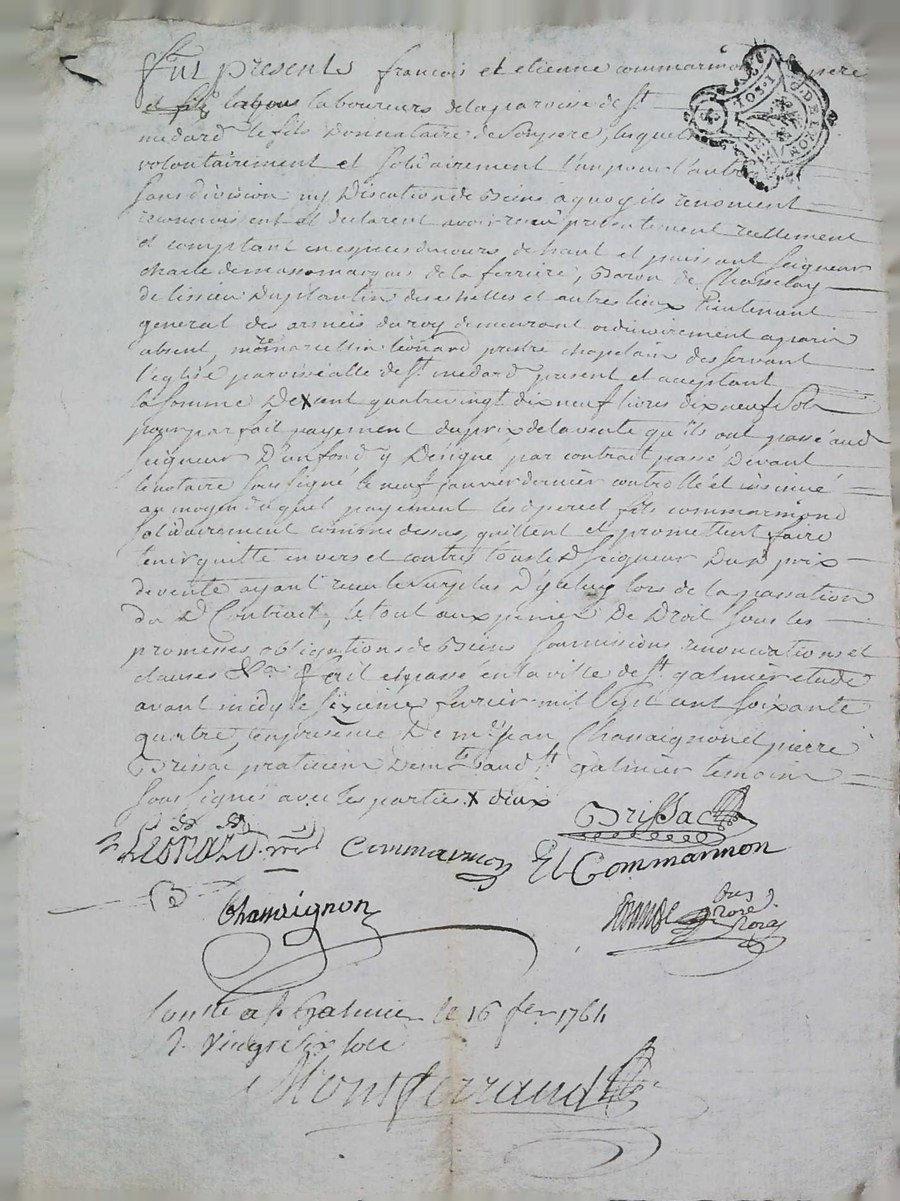 fut presents francois et etienne commarmon pere
et fils laboureurs de la parroisse de St
medard le fils donnataire de son pere, lesquels
volontairement et solidairement l'un pour l'autre
sans division ny discution de biens a quoy ils renoncent
reconnoissent et declarent avoir receu presentement reellement
et comptant en especes du cours de haut et puissant seigneur
charle demasso marquis de la ferriere, Baron de Chasselay
de lissieu Duplantin des chelles et autres lieux Lieutenant
general des armées du roy demeurant ordinairement a paris
absent, mre marcellin leonard prestre chapelain desservant
l'eglise parroissialle de St medard present et acceptant
la somme De X cent quatre vingt dix neuf livres dix neuf sols
pour parfait payement du prix de la vente qu'ils ont passé aud
seigneur D'un fond y Designé par contrait passé Devant
le notaire soussigné le neuf janvier dernier controllé et insinué
au moyen duquel payement lesd pere et fils commarmond
solidairement comme dessus, quittent et promettent faire
tenir quitte envers et contre tous led Seigneur Dud prix
de vente ayant receu le surplus D'yceluy lors de la passation
du Dt Contrait, le tout aux peines De Droit sous les
promesses obligations de Biens soumissions renonciations et
clauses &a fait et passé en la ville de St galmier etude
avant midy le sizieme fevrier mil sept cent soixante
quatre en presence De mre Jean Chassaignon et pierre
Brissac praticiens Demts aud St galmier temoins
soussignés avec les parties X deux
Brissac
LEONARD Commarmon Et Commarmon
Chassaignon
Controllé a St Galmier le 16 fer 1764
R. vingt six sols
Montferrand